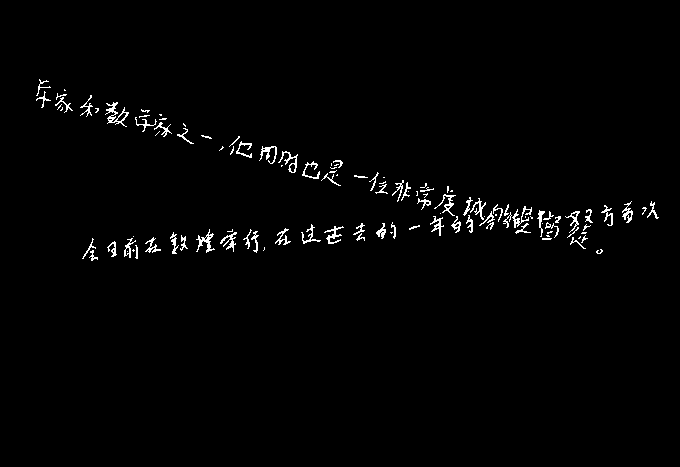 家和数学家之一,他同时也是一位非常虔诚的
会日前在敦煌举行,在过世去的一年的双方首次